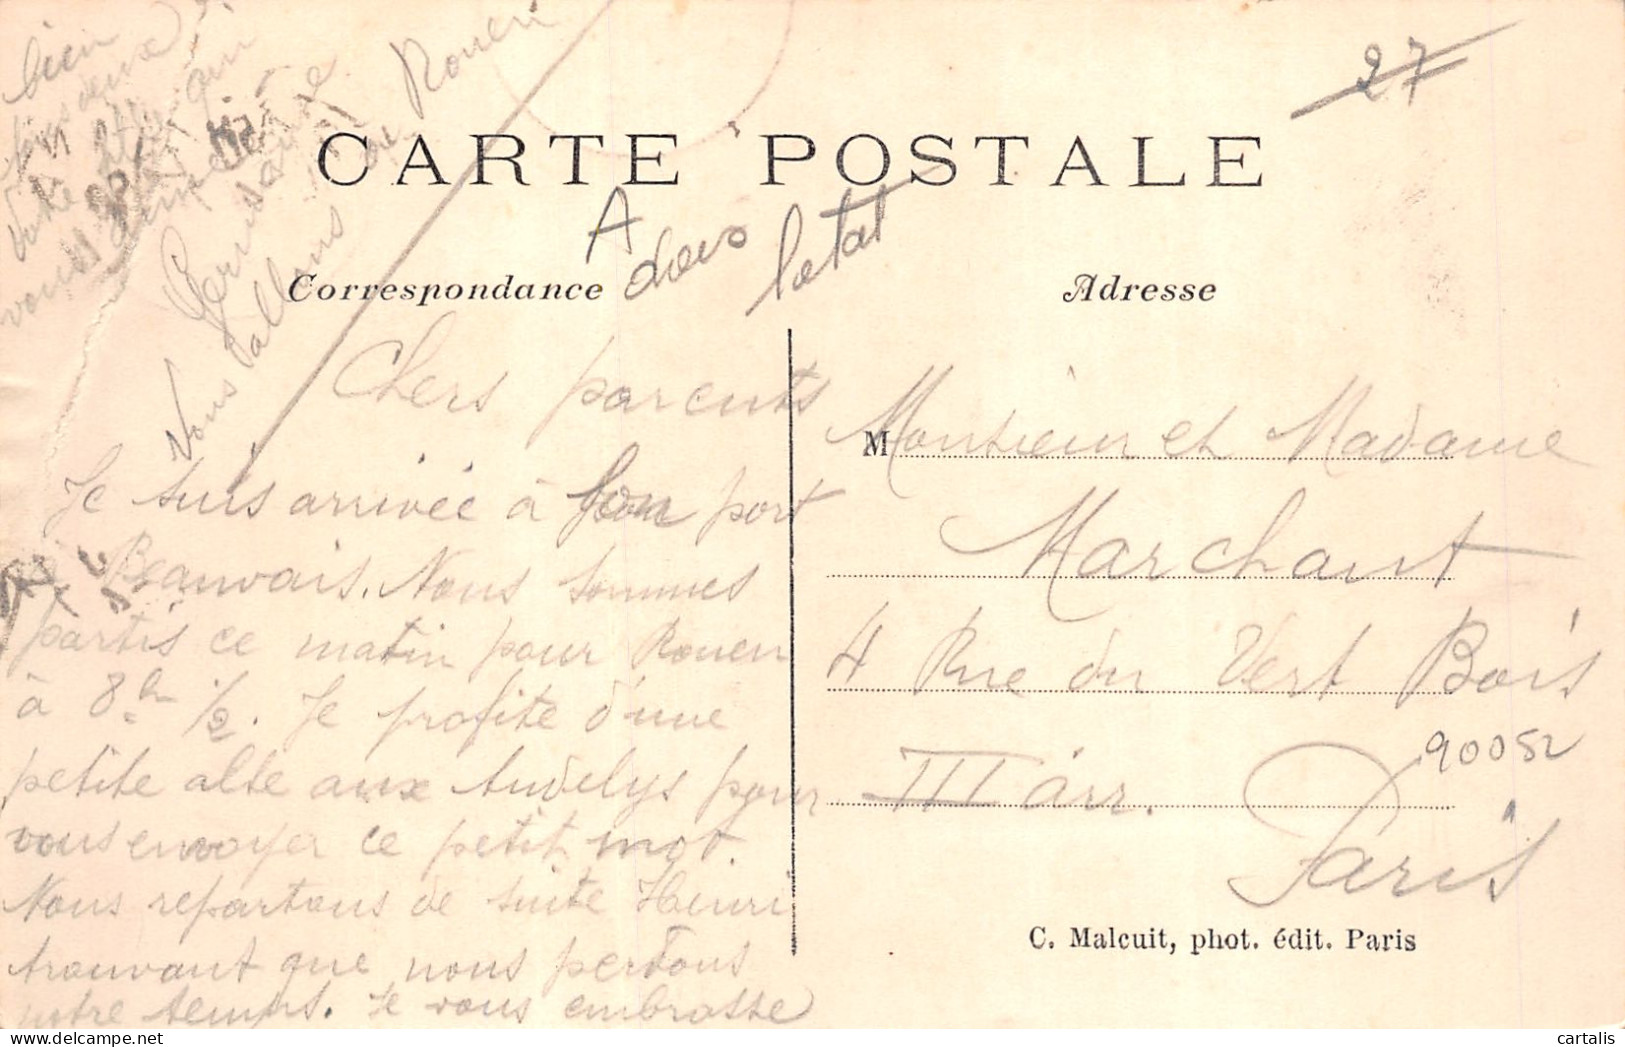 27
CARTE POSTALE
A
dos
Correspondance
Adresse
Chers parents
Je suis arrivée à bon port
Beauvais. Nous sommes
partis ce matin pour Rouen
à 8h 1/2. Je profite d'une
petite alte aux Andelys pour
vous envoyer ce petit mot.
Nous repartons de suite Henri
trouvant que nous perdons
notre temps. Je vous embrasse
bien
tous deux
Votre
vous aime
Germaine
Nous allons
Rouen
M Monsieur et Madame
Marchant
4 Rue du Vert Bois
III arr.
90052
Paris
C. Malcuit, phot. édit. Paris
cartalis
delcampe.net